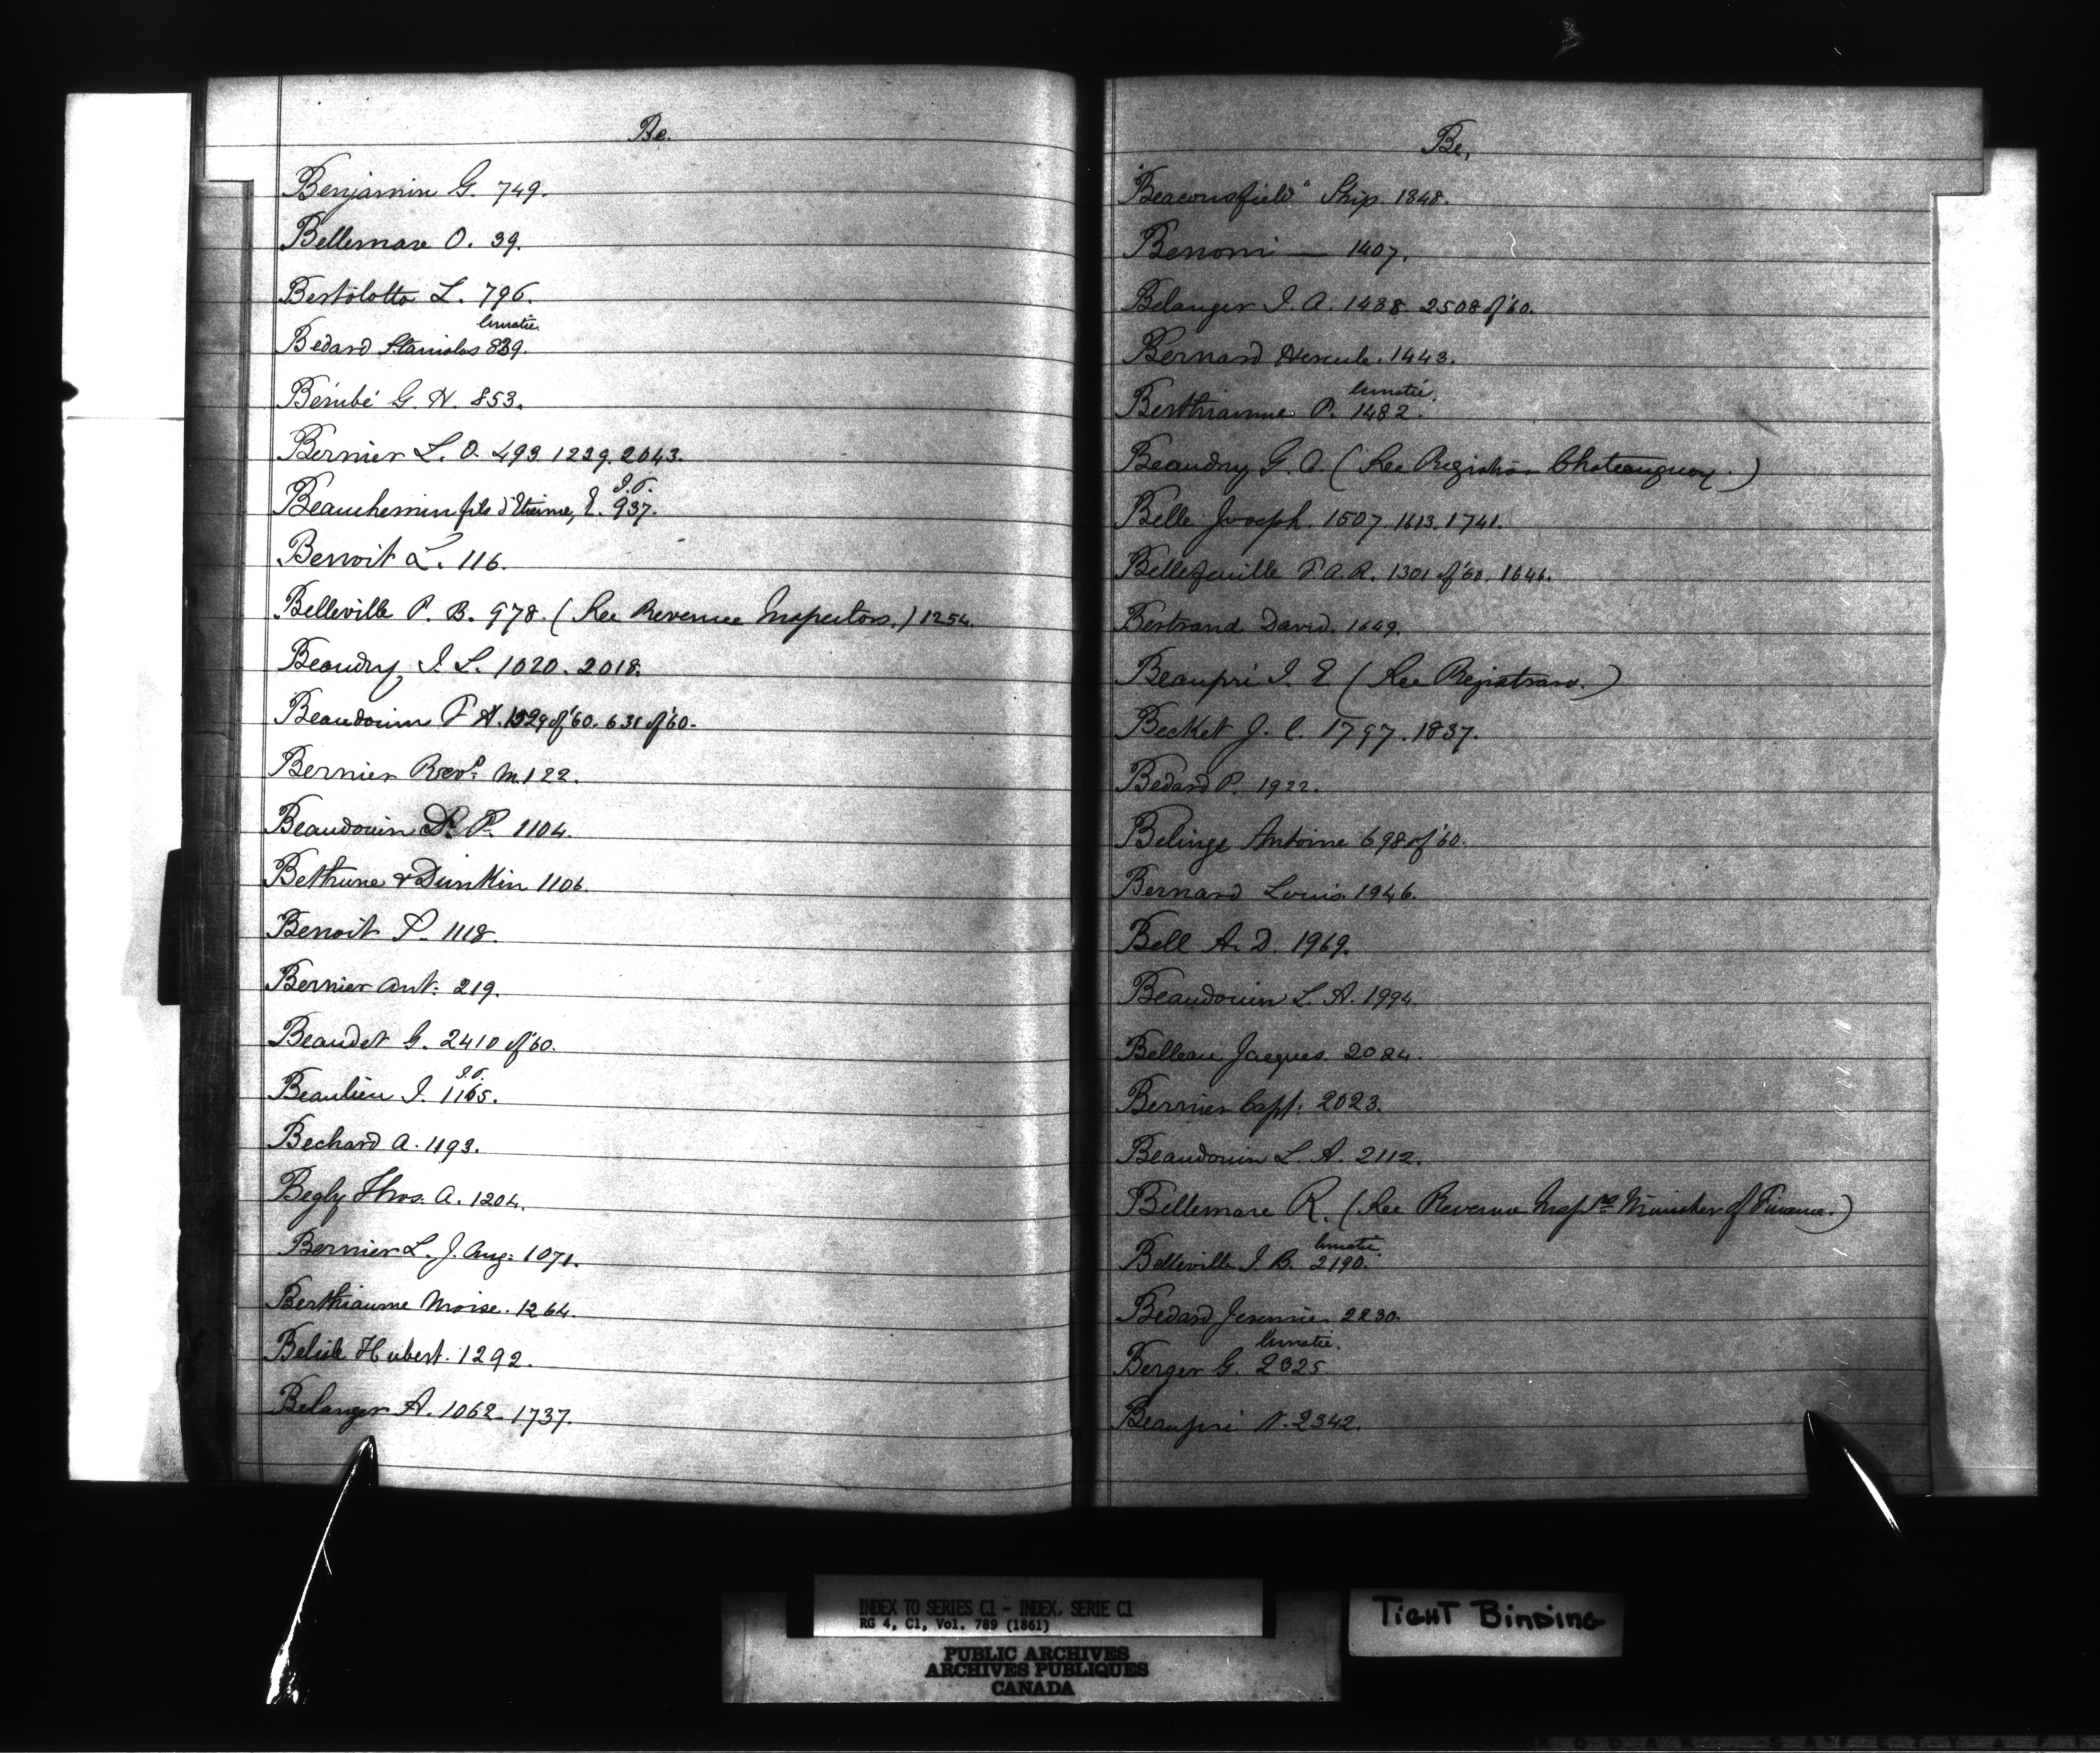 Be.
Benjamin G. 749.
Bellemare O. 39.
Bertolotto L. 796.
lunatic
Bedard Stanislas 839.
Bérubé G. H. 853.
Bernier L. O. 493. 1239. 2043.
J.P.
Beauchemin fils d'Etienne, E. 937.
Benoit L. 116.
Belleville P. B. 978. (See Revenue Inspectors.) 1254.
Beaudry J. L. 1020. 2018.
Beaudouin P H. 1529 of '60. 631 of '60.
Bernier Revd. M. 122.
Beaudouin Dr. P. 1104.
Bethune & Dunkin 1106.
Benoit P. 1118.
Bernier Ant: 219.
Beaudet G. 2410 of '60.
J.P.
Beaulieu J. 1165.
Bechard A. 1193.
Begly Thos. A. 1204.
Bernier L. J. Aug: 1071.
Berthiaume Moise. 1264.
Belisle Hubert. 1292.
Belanger A. 1062. 1737.
Be,
"Beaconsfield" Ship. 1348.
Benoni — 1407.
Belanger J. A. 1438. 2508 of '60.
Bernard Hercule. 1443.
lunatic.
Berthiaume P. 1482.
Beaudry G. O. (See Registrar Chateauguay.)
Belle Joseph. 1507. 1613. 1741.
Bellefeuille F A. R. 1301 of '60. 1646.
Bertrand David. 1649.
Beaupré J. E (See Registrars.)
Becket J. C. 1797. 1837.
Bedard P. 1922.
Belinge Antoine 698 of '60.
Bernard Louis. 1946.
Bell A. D. 1969.
Beaudouin L. A. 1994.
Belleau Jacques. 2084.
Bernier Capt: 2023.
Beaudouin L. A. 2112.
Bellemare R. (See Revenue Insprs. Minister of Finance.)
lunatic.
Belleville J. B. 2190.
Bedard Jeremie. 2230.
lunatic.
Berger G. 2325.
Beaupré N. 2342.
INDEX TO SERIES C1 - INDEX, SERIE C1
RG 4, C1, Vol. 789 (1861)
PUBLIC ARCHIVES
ARCHIVES PUBLIQUES
CANADA
TIGHT BINDING